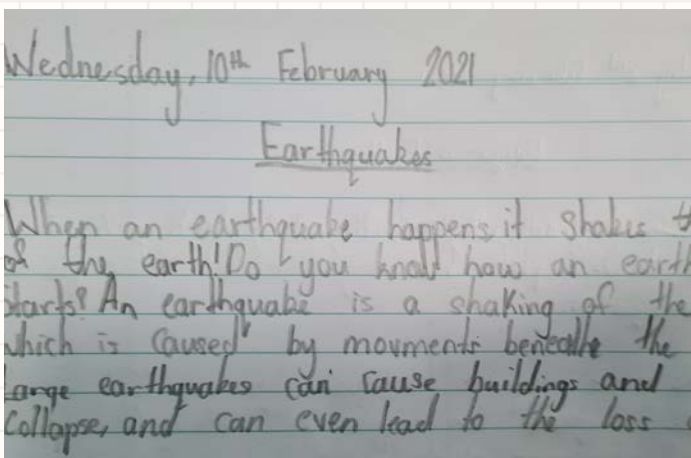 Wednesday, 10th February 2021
Earthquakes
When an earthquake happens, it shakes t
of the earth! Do you know how an earth
starts? An earthquake is a shaking of the
which is caused by movments beneathe the
Large earthquakes can cause buildings and
collapse, and can even lead to the loss